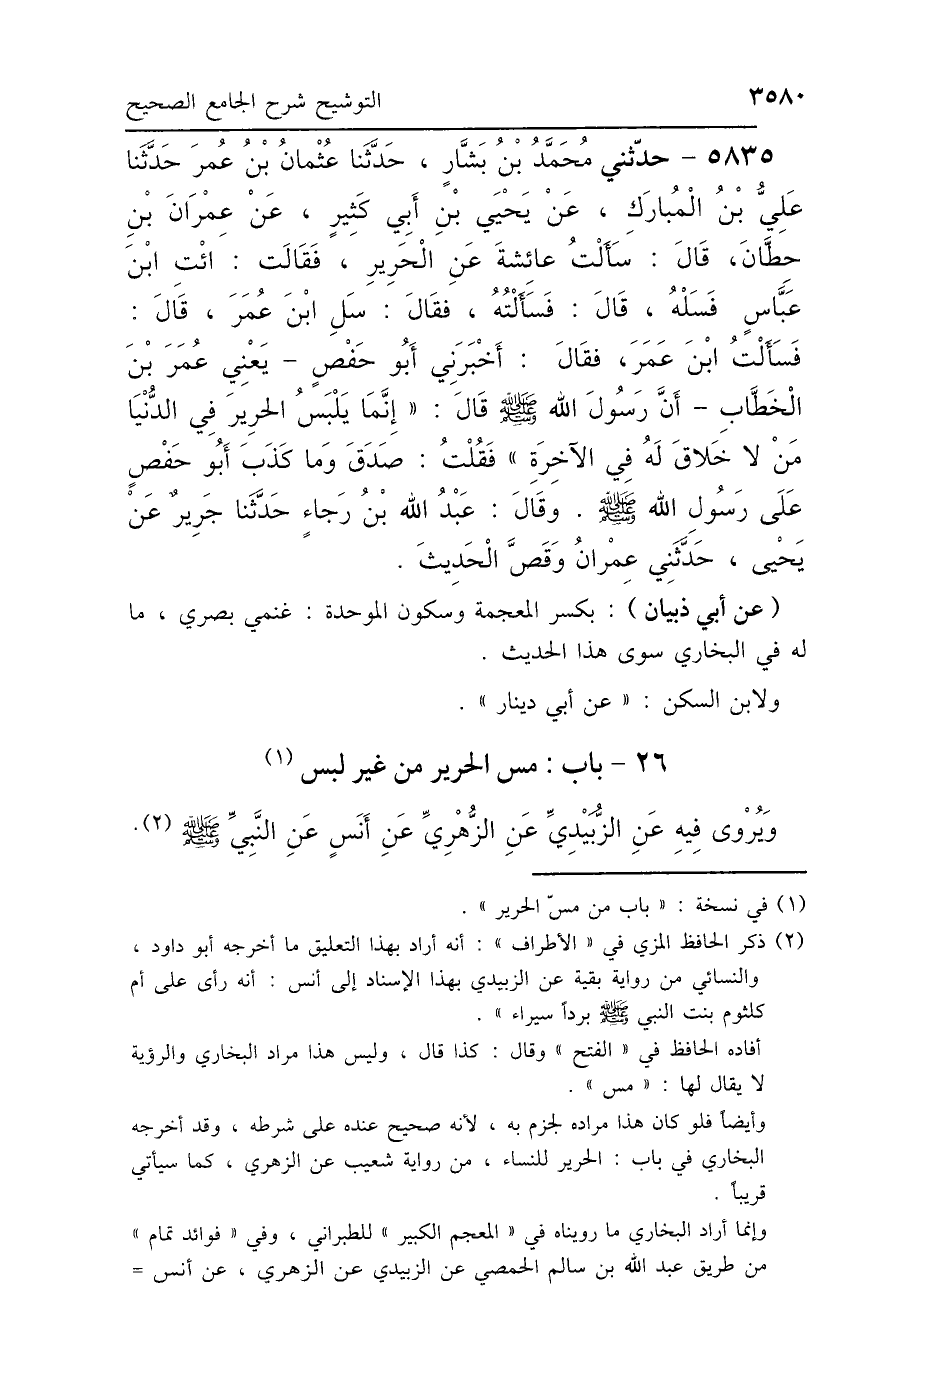 ٣٥٨٠ التوشيح شرح الجامع الصحيح
٥٨٣٥ - حدّثني مُحَمَّدُ بْنُ بَشَّارٍ ، حَدَّثَنا عُثْمانُ بْنُ عُمرَ حَدَّثَنا
عَلِيُّ بْنُ الْمُبارَكِ ، عَنْ يَحْيَى بْنِ أَبِي كَثِيرٍ ، عَنْ عِمْرَانَ بْنِ
حِطَّانَ، قَالَ : سَأَلْتُ عائشةَ عَنِ الْحَرِيرِ ، فَقَالَت : ائْتِ ابْنَ
عَبَّاسٍ فَسَلْهُ ، قَالَ : فَسَأَلْتُهُ ، فقَالَ : سَلِ ابْنَ عُمَرَ ، قَالَ :
فَسَأَلْتُ ابْنَ عَمَرَ، فقَالَ : أَخْبَرَنِي أَبُو حَفْصٍ - يَعْنِي عُمَرَ بْنَ
الْخَطَّابِ - أَنَّ رَسُولَ الله ﷺ قَالَ : « إِنَّمَا يَلْبَسُ الحريرَ فِي الدُّنْيَا
مَنْ لا خَلاقَ لَهُ فِي الآخِرَةِ » فَقُلْتُ : صدَقَ وَما كَذَبَ أَبُو حَفْصٍ
عَلَى رَسُولِ الله ﷺ . وقَالَ : عَبْدُ الله بْنُ رَجاءٍ حَدَّثَنا جَرِيرٌ عَنْ
يَحْيى ، حَدَّثَنِي عِمْرانُ وَقَصَّ الْحَدِيثَ .
( عن أبي ذبيان ) : بكسر المعجمة وسكون الموحدة : غنمي بصري ، ما
له في البخاري سوى هذا الحديث .
ولابن السكن : « عن أبي دينار » .
٢٦ - باب : مس الحرير من غير لبس (١)
وَيُرْوى فِيهِ عَنِ الزُّبَيْدِيِّ عَنِ الزُّهْرِيِّ عَنِ أَنَسٍ عَنِ النَّبِيِّ ﷺ (٢).
(١) في نسخة : « باب من مسّ الحرير » .
(٢) ذكر الحافظ المزي في « الأطراف » : أنه أراد بهذا التعليق ما أخرجه أبو داود ،
والنسائي من رواية بقية عن الزبيدي بهذا الإسناد إلى أنس : أنه رأى على أم
كلثوم بنت النبي ﷺ برداً سيراء » .
أفاده الحافظ في « الفتح » وقال : كذا قال ، وليس هذا مراد البخاري والرؤية
لا يقال لها : « مس » .
وأيضاً فلو كان هذا مراده لجزم به ، لأنه صحيح عنده على شرطه ، وقد أخرجه
البخاري في باب : الحرير للنساء ، من رواية شعيب عن الزهري ، كما سيأتي
قريباً .
وإنما أراد البخاري ما رويناه في « المعجم الكبير » للطبراني ، وفي « فوائد تمام »
من طريق عبد الله بن سالم الحمصي عن الزبيدي عن الزهري ، عن أنس =